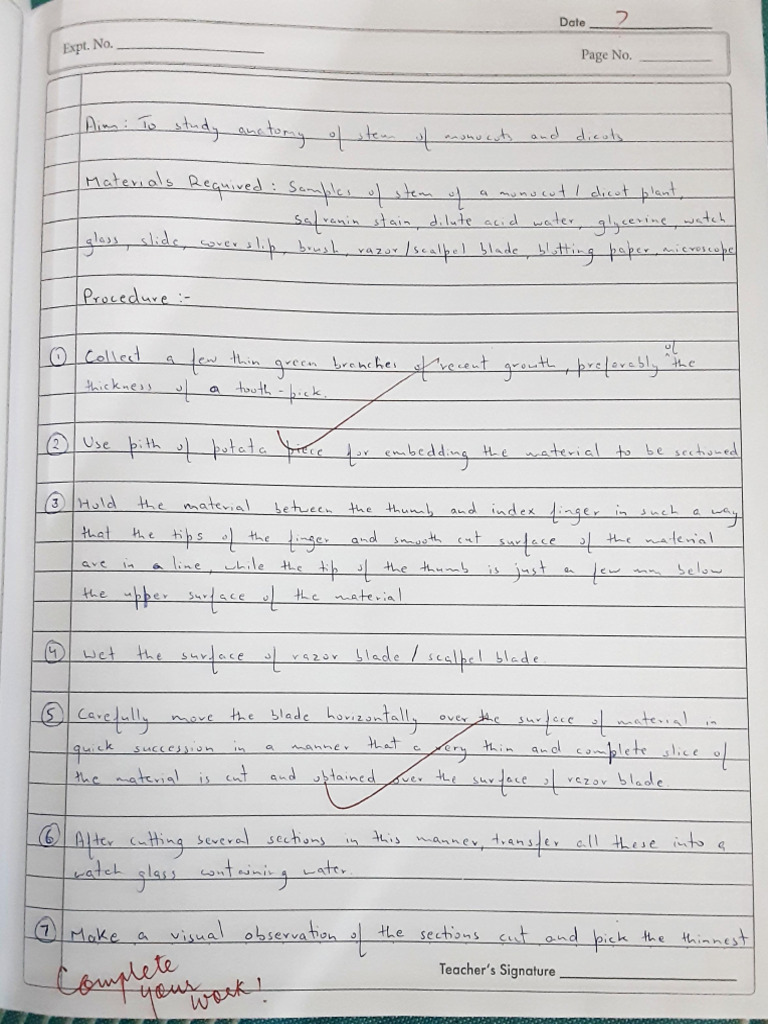 Date ?
Expt. No.
Page No.
Aim: To study anatomy of stem of monocots and dicots
Materials Required: Samples of stem of a monocot / dicot plant,
safranin stain, dilute acid water, glycerine, watch
glass, slide, cover slip, brush, razor/scalpel blade, blotting paper, microscope
Procedure :-
① Collect a few thin green branches of recent growth, preferably of the
thickness of a tooth-pick.
② Use pith of potata piece for embedding the material to be sectioned
③ Hold the material between the thumb and index finger in such a way
that the tips of the finger and smooth cut surface of the material
are in a line, while the tip of the thumb is just a few mm below
the upper surface of the material
④ Wet the surface of razor blade / scalpel blade.
⑤ Carefully move the blade horizontally over the surface of material in
quick succession in a manner that a very thin and complete slice of
the material is cut and obtained over the surface of razor blade.
⑥ After cutting several sections in this manner, transfer all these into a
watch glass containing water.
⑦ Make a visual observation of the sections cut and pick the thinnest
Teacher's Signature
Complete
your
work!